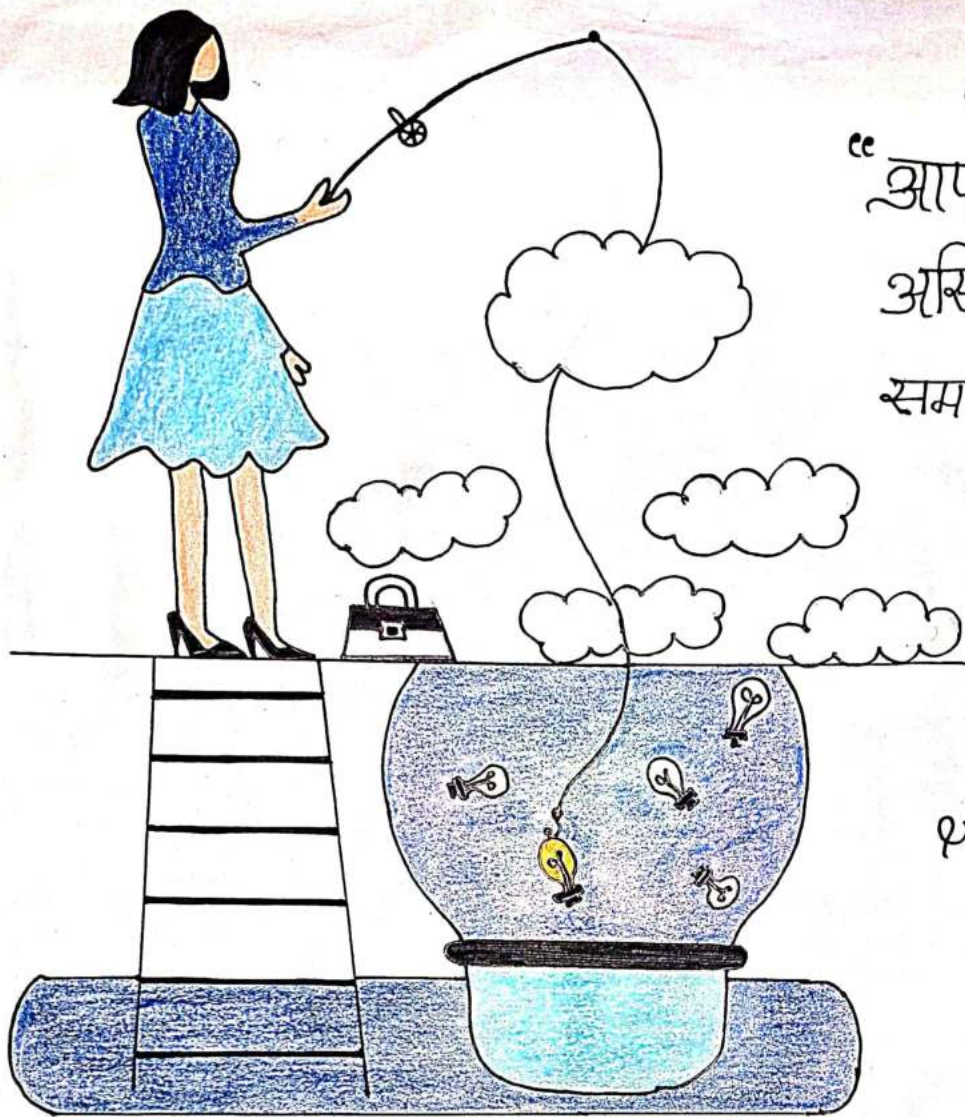 “आप
असि
सम